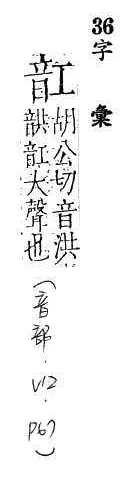 36字彙
䪦
胡公切音洪
䪦大聲也
(音部.V12.P67)